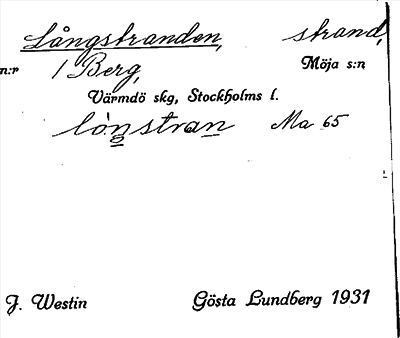 Långstranden, strand,
n:r 1 Berg, Möja s:n
Värmdö skg, Stockholms l.
lònstran Ma 65
J. Westin Gösta Lundberg 1931